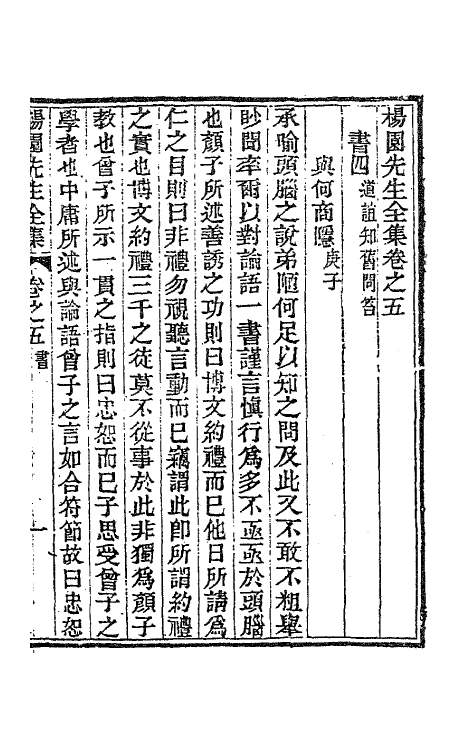 楊園先生全集卷之五
書四 道誼知舊問答
與何商隱 庚子
承喻頭腦之說弟陋何足以知之問及此又不敢不粗舉
所聞率爾以對論語一書謹言愼行爲多不亟亟於頭腦
也顏子所述善誘之功則曰博文約禮而已他日所請爲
仁之目則曰非禮勿視聽言動而已竊謂此卽所謂約禮
之實也博文約禮三千之徒莫不從事於此非獨爲顏子
教也曾子所示一貫之指則曰忠恕而已子思受曾子之
學者也中庸所述與論語曾子之言如合符節故曰忠恕
楊園先生全集 卷之五 書 一